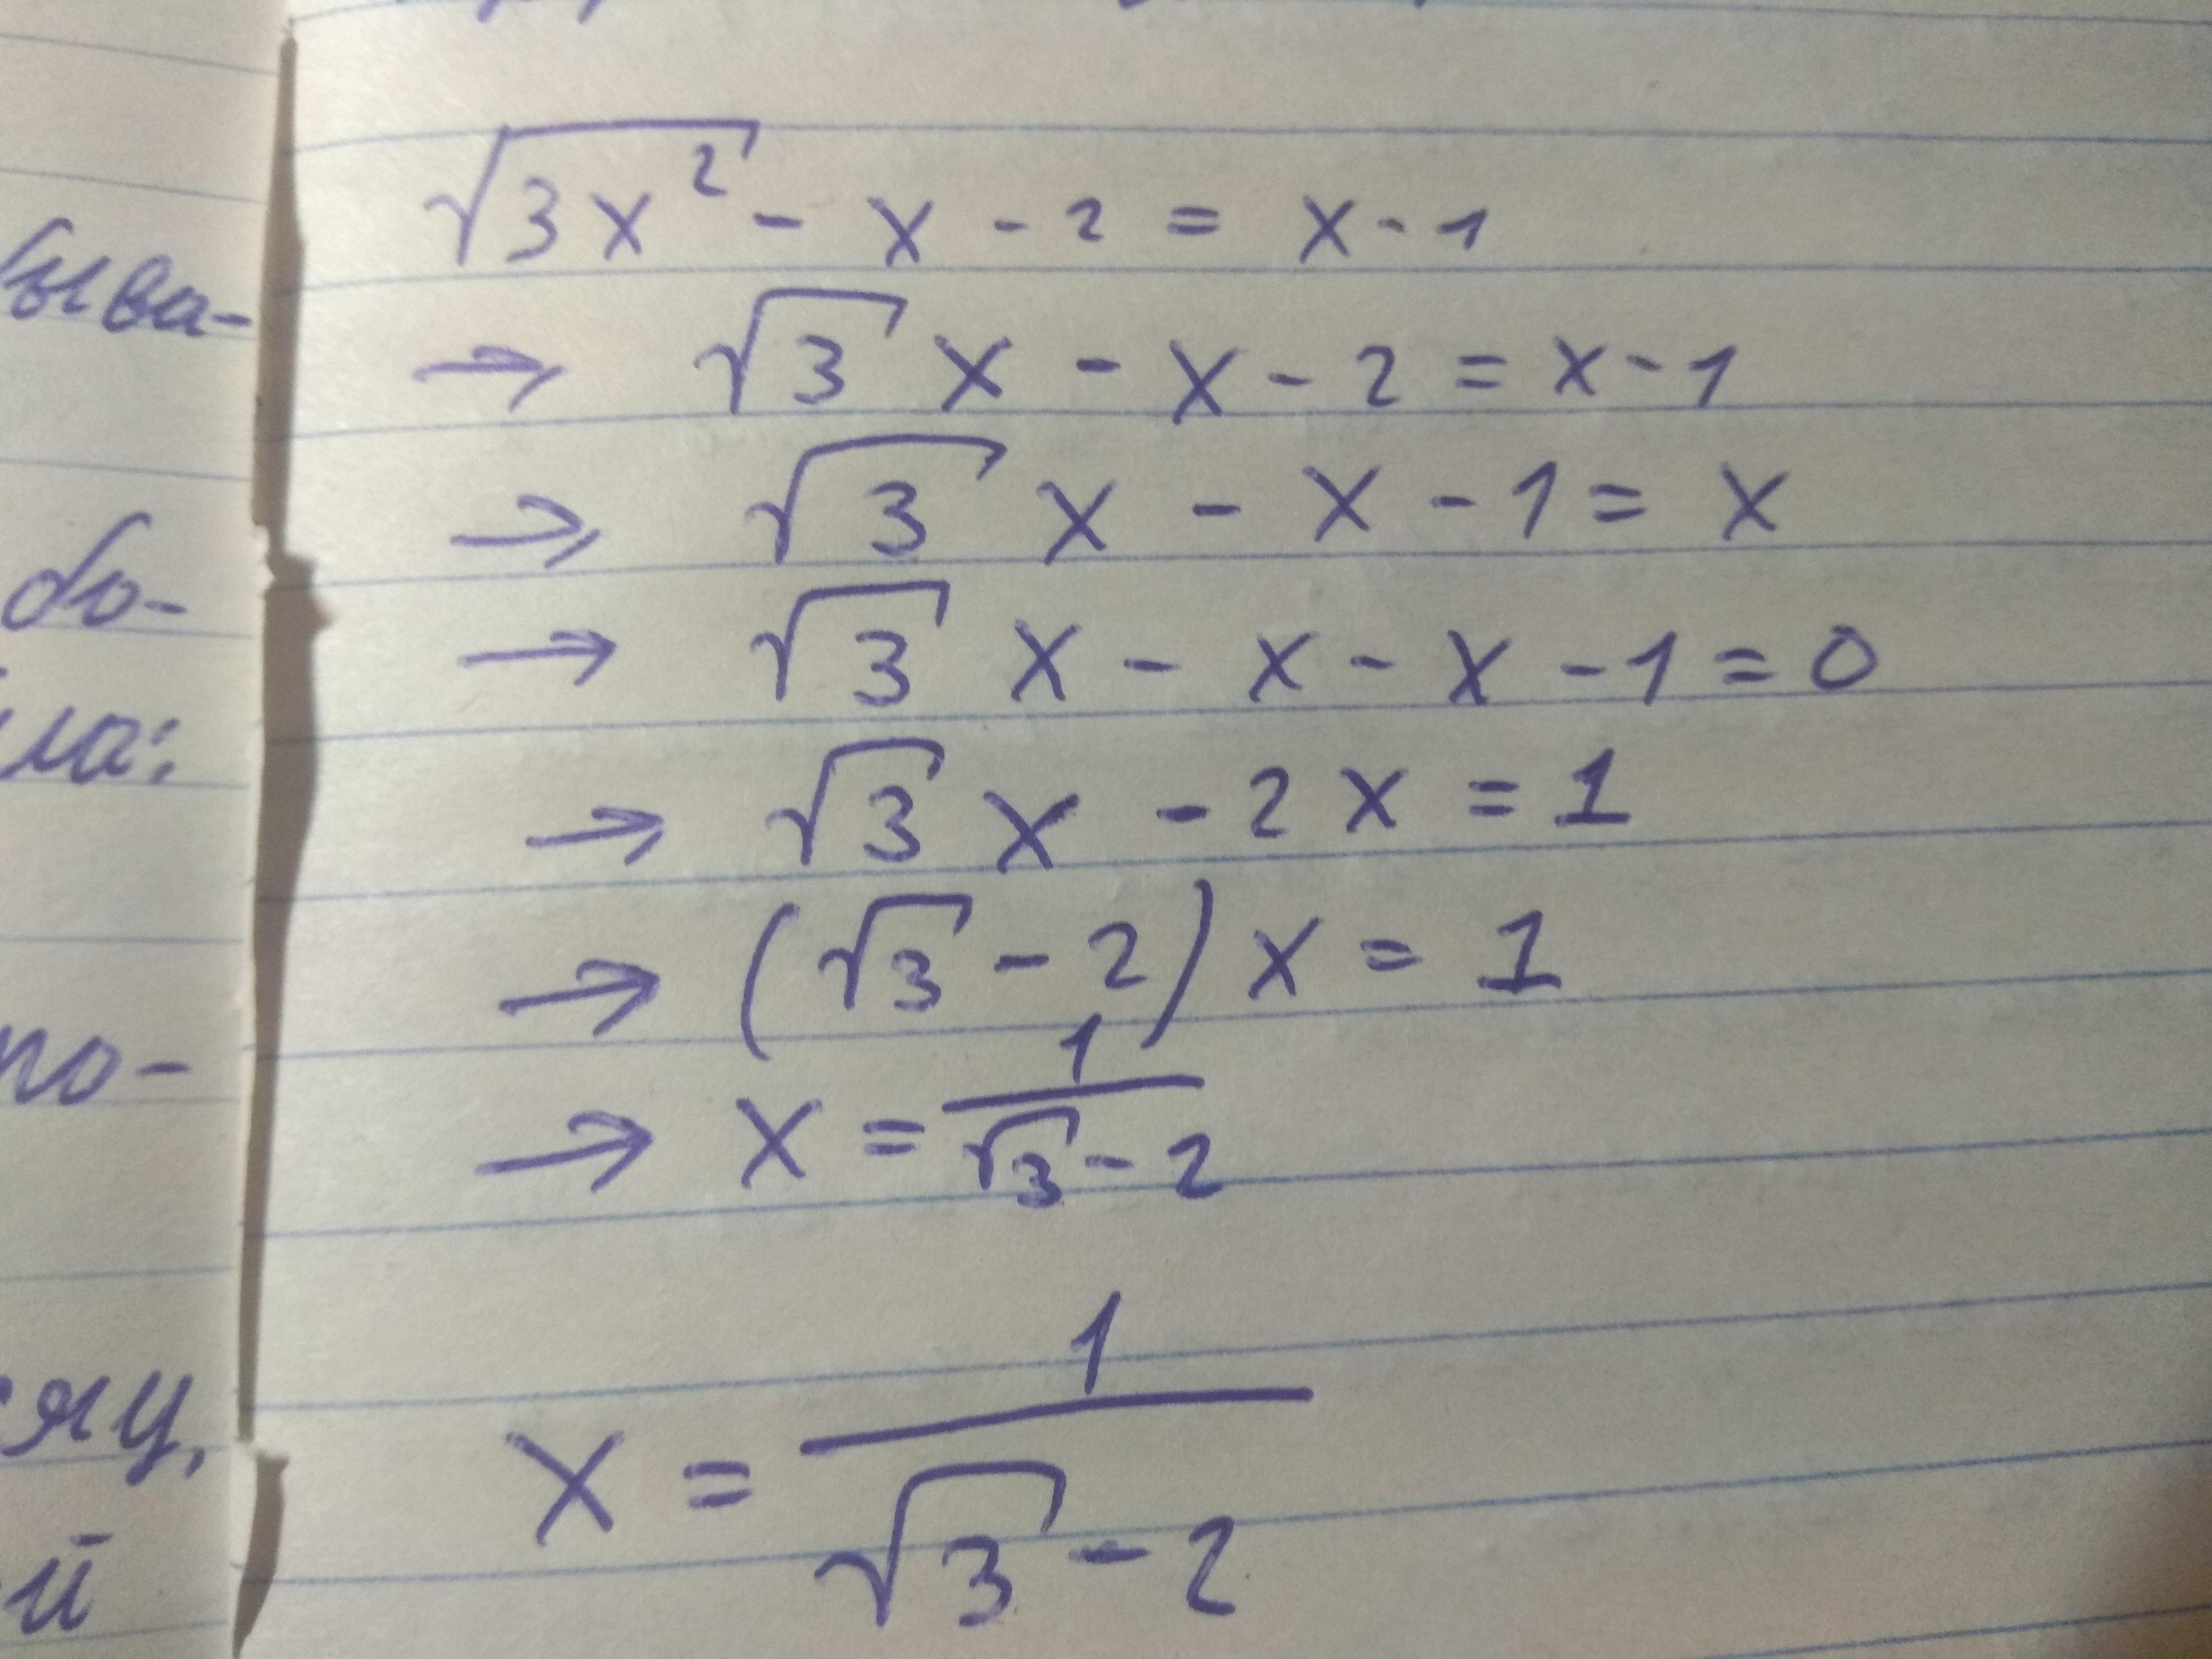 ыва-
бо-
ла:
по-
сяу,
й
√3x² - x - 2 = x - 1
→ √3 x - x - 2 = x - 1
→ √3 x - x - 1 = x
→ √3 x - x - x - 1 = 0
→ √3 x - 2x = 1
→ (√3 - 2) x = 1
→ x = 1/(√3 - 2)
x = 1/(√3 - 2)